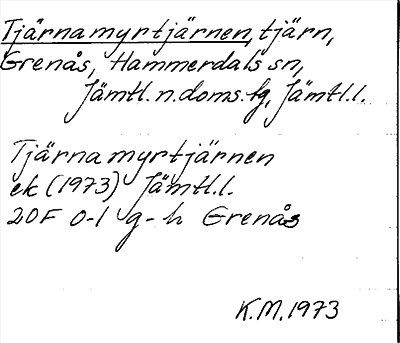 Tjärnamyrtjärnen, tjärn,
Grenås, Hammerdals sn,
Jämtl.n.doms.lg, Jämtl.l.
Tjärnamyrtjärnen
ek (1973) Jämtl.l.
20F 0-1 g-h Grenås
K.M. 1973